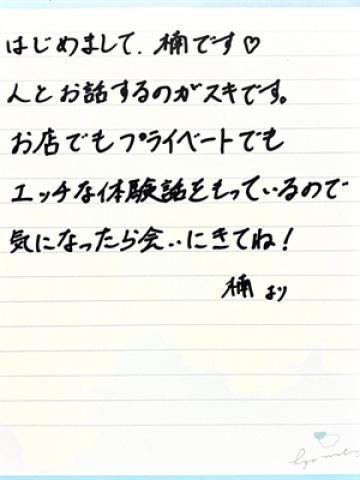 はじめまして、楠です♡
人とお話するのがスキです。
お店でもプライベートでも
エッチな体験話をもっているので
気になったら会いにきてね！
楠より